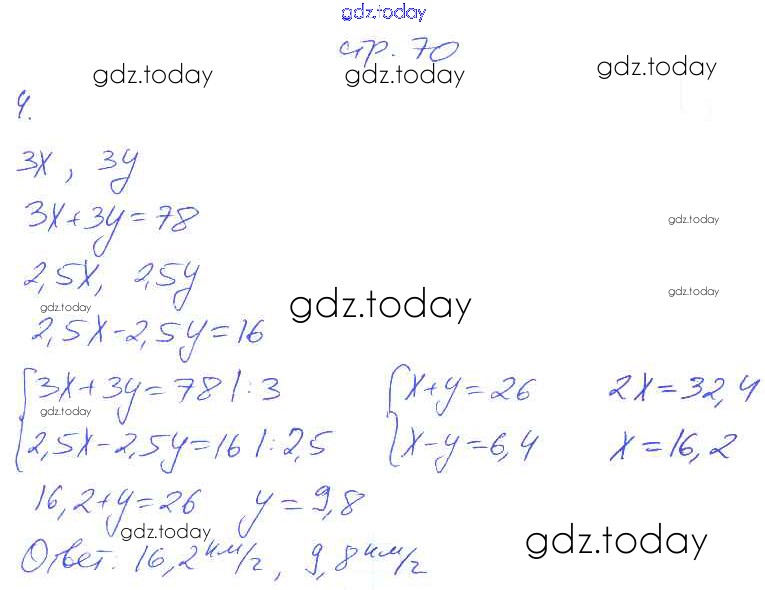 gdz.today
стр. 70
gdz.today gdz.today gdz.today
4.
3x, 3y
3x+3y=78
gdz.today
2,5x, 2,5y
gdz.today
gdz.today gdz.today
2,5x-2,5y=16
3x+3y=78 |:3 x+y=26 2x=32,4
gdz.today
2,5x-2,5y=16 |:2,5 x-y=6,4 x=16,2
16,2+y=26 y=9,8
gdz.today gdz.today
Ответ: 16,2 км/г, 9,8 км/г